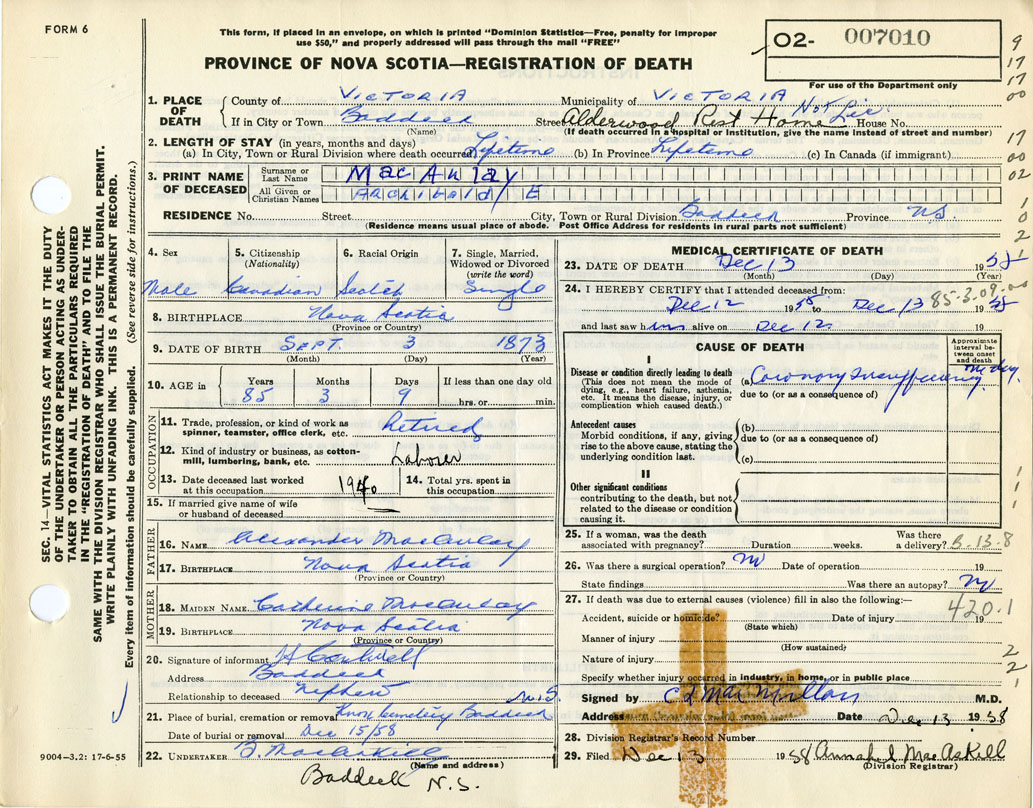 FORM 6
This form, if placed in an envelope, on which is printed "Dominion Statistics—Free, penalty for improper
use $50," and properly addressed will pass through the mail "FREE"
PROVINCE OF NOVA SCOTIA—REGISTRATION OF DEATH
02- 007010
For use of the Department only
9
17
17
00
17
00
02
1
0
2
1. PLACE OF DEATH
County of Victoria Municipality of Victoria
If in City or Town Baddeck Street Alderwood Rest Home House No. Not Lic.
(Name) (If death occurred in a hospital or institution, give the name instead of street and number)
2. LENGTH OF STAY (in years, months and days)
(a) In City, Town or Rural Division where death occurred Lifetime (b) In Province Lifetime (c) In Canada (if immigrant)
3. PRINT NAME OF DECEASED
Surname or Last Name MacAulay
All Given or Christian Names Archibald E
RESIDENCE No. Street City, Town or Rural Division Baddeck Province N.S.
(Residence means usual place of abode. Post Office Address for residents in rural parts not sufficient)
4. Sex 5. Citizenship (Nationality) 6. Racial Origin 7. Single, Married, Widowed or Divorced (write the word)
Male Canadian Scotch Single
8. BIRTHPLACE Nova Scotia
(Province or Country)
9. DATE OF BIRTH Sept. 3 1873
(Month) (Day) (Year)
10. AGE in Years Months Days If less than one day old
85 3 9 hrs. or min.
OCCUPATION
11. Trade, profession, or kind of work as spinner, teamster, office clerk, etc. Retired
12. Kind of industry or business, as cotton-mill, lumbering, bank, etc. Laborer
13. Date deceased last worked at this occupation 1940 14. Total yrs. spent in this occupation
15. If married give name of wife or husband of deceased
FATHER
16. NAME Alexander MacAulay
17. BIRTHPLACE Nova Scotia
(Province or Country)
MOTHER
18. MAIDEN NAME Catherine MacAulay
19. BIRTHPLACE Nova Scotia
(Province or Country)
20. Signature of informant
Address Baddeck
Relationship to deceased Nephew N.S.
21. Place of burial, cremation or removal Knox Cemetery Baddeck
Date of burial or removal Dec 15/58
22. UNDERTAKER B. MacAskill
(Name and address)
Baddeck N.S.
9004-3.2: 17-6-55
MEDICAL CERTIFICATE OF DEATH
23. DATE OF DEATH Dec 13 1958
(Month) (Day) (Year)
24. I HEREBY CERTIFY that I attended deceased from:
85-3-09-00
Dec 12 1958 to Dec 13 1958
and last saw him alive on Dec 12 19
CAUSE OF DEATH
Approximate interval between onset and death
I
Disease or condition directly leading to death
(This does not mean the mode of dying, e.g., heart failure, asthenia, etc. It means the disease, injury, or complication which caused death.)
(a) Coronary Insufficiency
due to (or as a consequence of)
Antecedent causes
Morbid conditions, if any, giving rise to the above cause, stating the underlying condition last.
(b)
due to (or as a consequence of)
(c)
II
Other significant conditions
contributing to the death, but not related to the disease or condition causing it.
1
1
1
25. If a woman, was the death associated with pregnancy? Duration weeks. Was there a delivery? B-13-8
26. Was there a surgical operation? No Date of operation 19
State findings Was there an autopsy? No
27. If death was due to external causes (violence) fill in also the following:—
420.1
Accident, suicide or homicide? Date of injury 19
(State which)
Manner of injury
(How sustained)
Nature of injury 2
2
Specify whether injury occurred in industry, in home, or in public place 1
Signed by C L MacMillan M.D.
Address Date Dec 13 1958
28. Division Registrar's Record Number
29. Filed Dec 13 1958 Annabel MacAskill
(Division Registrar)
SEC. 14—VITAL STATISTICS ACT MAKES IT THE DUTY
OF THE UNDERTAKER OR PERSON ACTING AS UNDER-
TAKER TO OBTAIN ALL THE PARTICULARS REQUIRED
IN THE "REGISTRATION OF DEATH" AND TO FILE THE
SAME WITH THE DIVISION REGISTRAR WHO SHALL ISSUE THE BURIAL PERMIT.
WRITE PLAINLY WITH UNFADING INK. THIS IS A PERMANENT RECORD.
Every item of information should be carefully supplied. (See reverse side for instructions.)